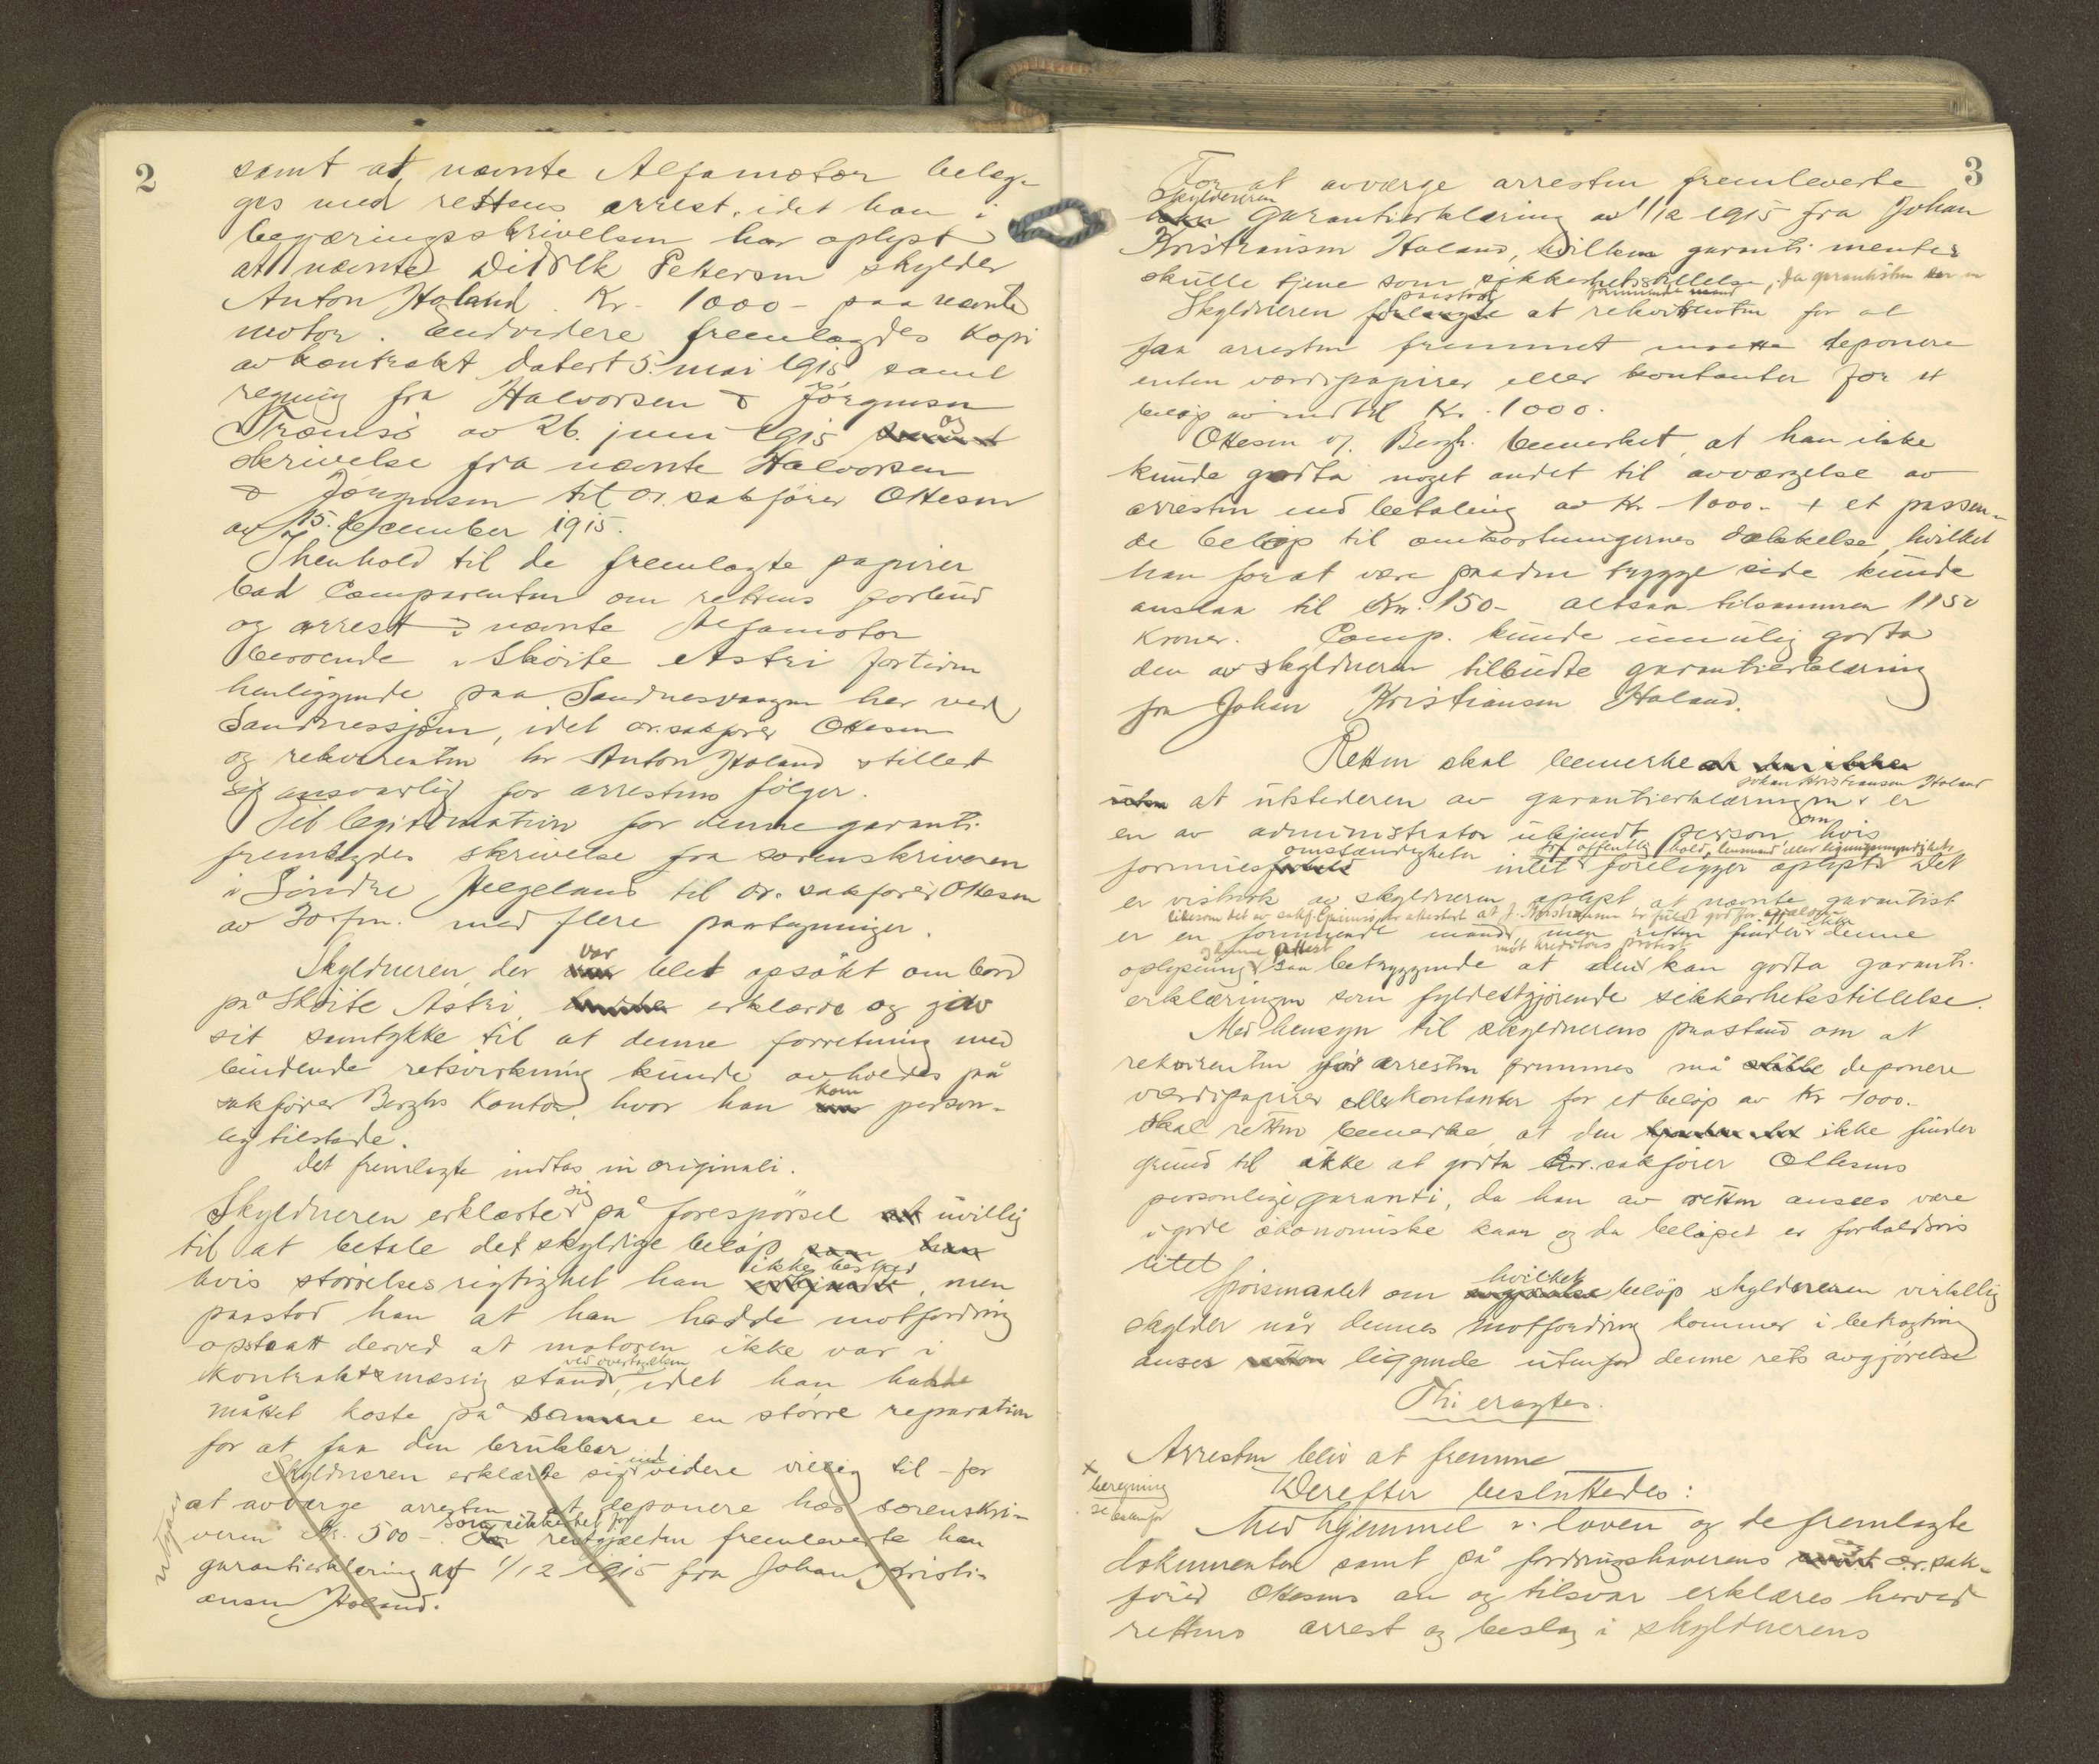 2
samt at nævnte Alfamotor belæg-
ges med rettens arrest, idet han i
begjæringsskrivelsen har oplyst
at nævnte Didrik Pettersen skylder
Anton Holand Kr. 1000 - paa nævnte
motor. Endvidere fremlagdes Kopi
av kontrakt datert 5. mai 1915 samt
regning fra Halvorsen & Jörgensen
Tromsö av 26. juni 1915 og
skrivelse fra nævnte Halvorsen
& Jörgensen til or. sakförer Ottesen
av 15. december 1915.
I henhold til de fremlagte papirer
bad Comparenten om rettens forbud
og arrest i nævnte Alfamotor
beroende i Sköite Astri fortiden
henliggende paa Sandnesvaagen her ved
Sandnessjöen, idet or. sakförer Ottesen
og rekvirenten hr Anton Holand stillet
sig ansvarlig for arrestens fölger.
Til legitimation for denne garanti
fremlagdes skrivelse fra sorenskriveren
i Söndre Helgeland til or. sakförer Ottesen
av 30 f.m. med flere paategninger.
Skyldneren, der var blet opsökt om bord
på Sköite Astri erklærde og gav
sit samtykke til at denne forretning med
bindende retsvirkning kunde avholdes på
sakförer Berghs Kontor, hvor han kom person-
lig tilstede.
Det fremlagte indtas in originali.
Skyldneren erklærte sig på forespörsel uvillig
til at betale det skyldige belöp
hvis störrelses rigtighet han ikke bestred, men
paastod han at han hadde motfordring
opstaatt derved at motoren ikke var i
kontraktsmæssig stand ved overtagelsen, idet han hadde
måttet koste på samme en större reparation
for at faa den brukbar
Skyldneren erklærte sig videre villig til - for
at avværge arresten - at deponere hos sorenskri-
veren Kr. 500 -. Som sikkerhet for restgjælden fremleverte han
garantierklæring af 1/12 1915 fra Johan Kristi-
ansen Holand.
utgår
3
For at avværge arresten fremleverte
Skyldneren garantierklæring av 1/12 1915 fra Johan
Kristiansen Holand, hvilken garanti mentes
skulle tjene som sikkerhetsstillelse, da garantisten er en
formuende mand
Skyldneren paastod at rekvirenten for at
faa arresten fremmet maatte deponere
enten værdipapirer eller kontanter for et
belöp av indtil Kr. 1000.
Ottesen v/ Bergh. bemerket at han ikke
kunde godta noget andet til avværgelse av
arresten end betaling av Kr 1000.- + et passen-
de belöp til omkostningernes dækkelse, hvilket
han for at være paa den trygge side kunde
anslaa til Kr. 150 - altsaa tilsammen 1150
Kroner. Comp. kunde umulig godta
den av skyldneren tilbudte garantierklæring
fra Johan Kristiansen Holand.
Retten skal bemerke
at utstederen av garantierklæringen Johan Kristiansen Holand er
en av administrator ukjendt person, om hvis
formuesomstændigheter intet fra offentlig hold, lensmand eller ligningsmyndighets foreligger oplyst. Det
er vistnok av skyldneren oplyst at nævnte garantist
er en formuende mand men retten finder ikke denne
oplysning saa betryggende at den mot kreditors protest kan godta garanti-
erklæringen som fyldestgjörende sikkerhetsstillelse.
Med hensyn til skyldnerens paastand om at
rekvirenten för arresten fremmes må deponere
værdipapirer eller kontanter for et belöp av Kr 1000.-
skal retten bemerke at den ikke finder
grund til ikke at godta or. sakförer Ottesens
personlige garanti, da han av retten ansees være
i gode ökonomiske kaar og da belöpet er forholdsvis
litet
Spörsmaalet om hvilket belöp skyldneren virkelig
skylder når dennes motfordring kommer i betragtning
anser liggende utenfor denne rets avgjörelse
Thi eragtes.
Arresten blir at fremme
Derefter besluttedes:
Med hjemmel i loven og de fremlagte
dokumenter samt på fordringshaverens or. sak-
förer Ottesens an og tilsvar erklæres herved
rettens arrest og beslag i skyldnerens